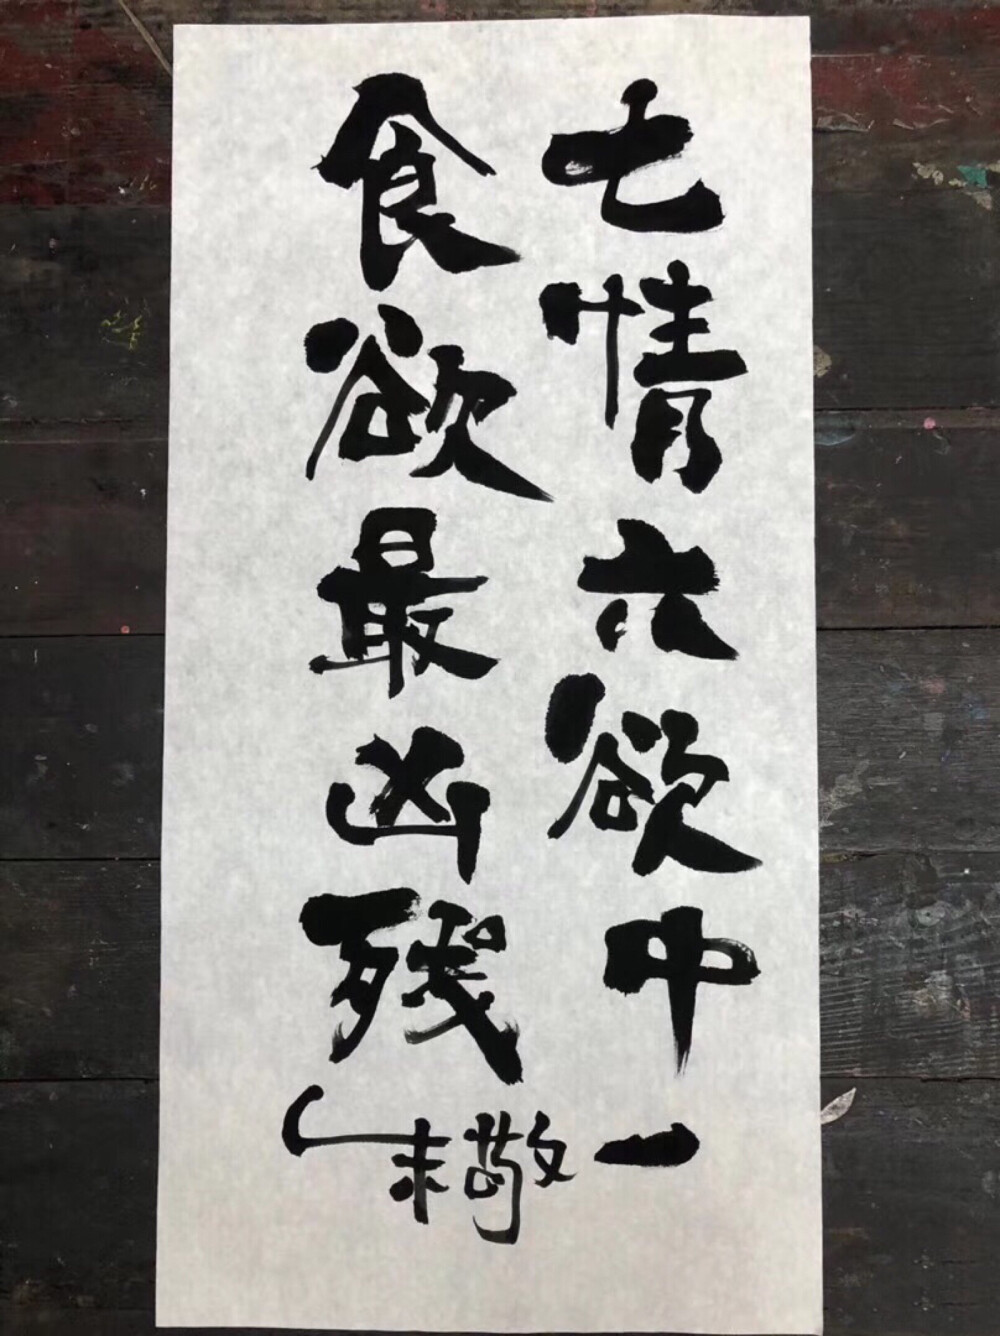 七情六欲中一
食欲最凶残